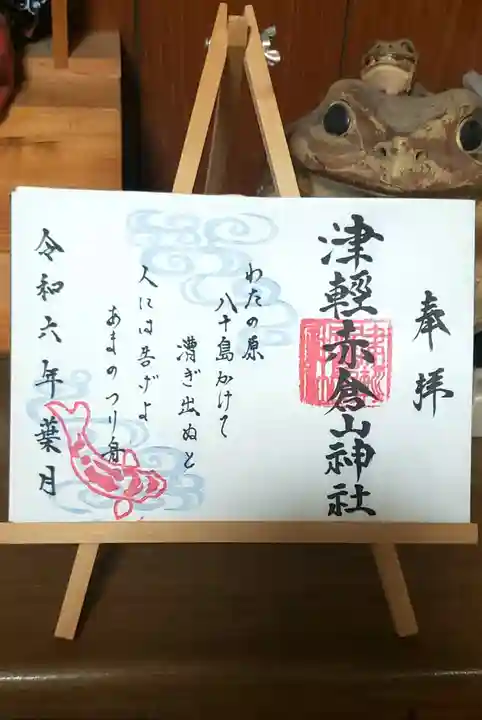 奉拝
津軽赤倉山神社
わたの原
八十島かけて
漕ぎ出ぬと
人には告げよ
あまのつり舟
令和六年葉月